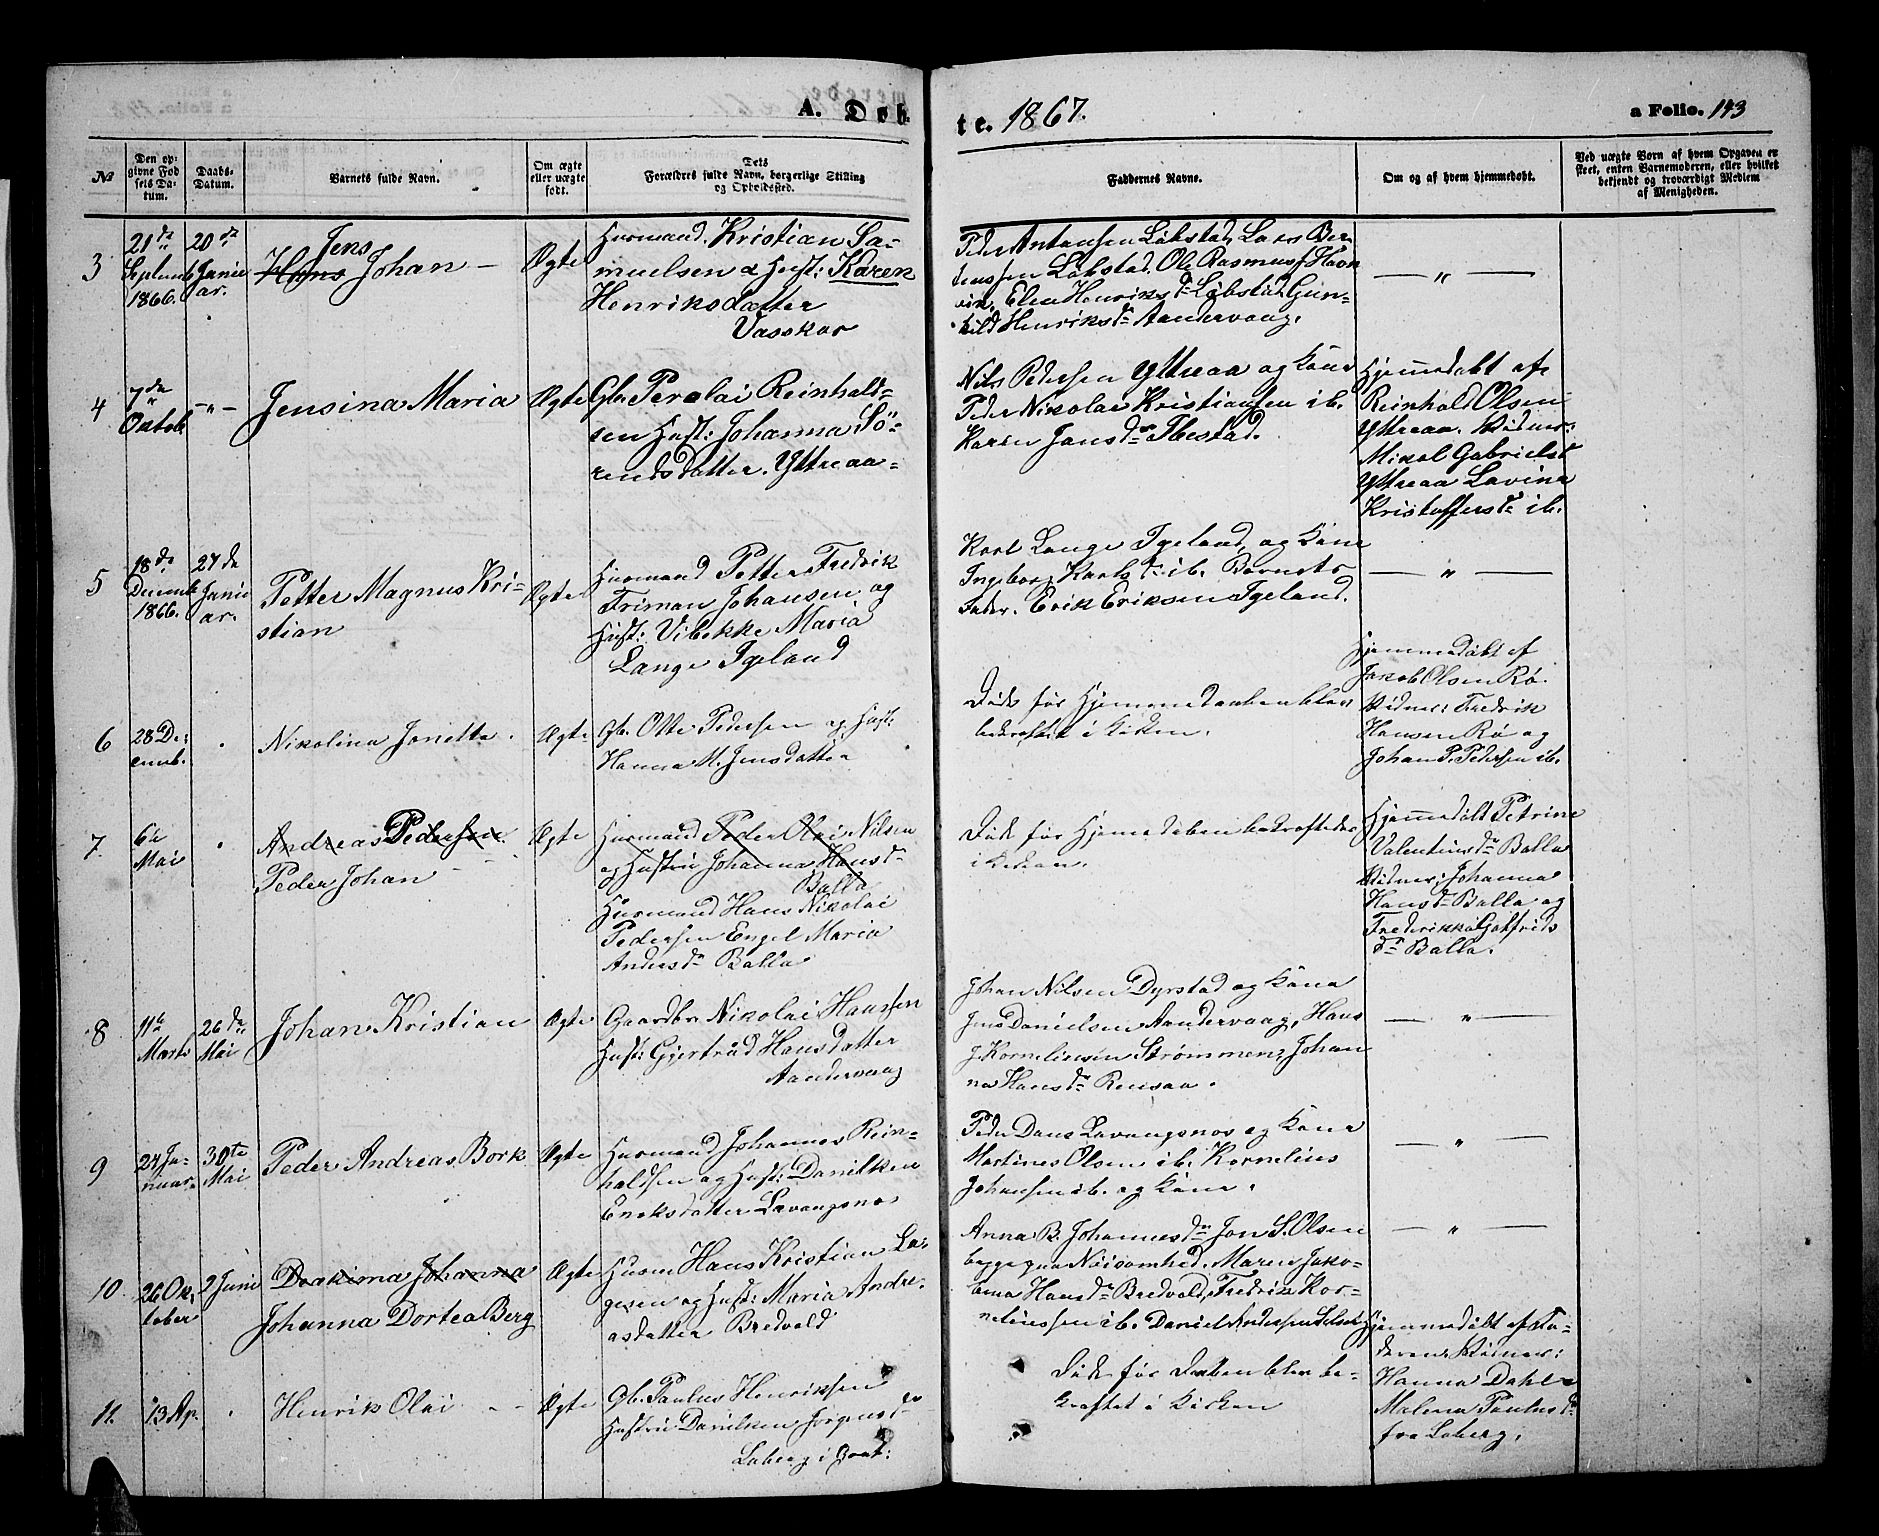 A. Døb-
te. 1867.
a Folio. 143
№
Den op-
givne Fød
sels Da-
tum.
Daabs-
Datum.
Barnets fulde Navn.
Om ægte
eller uægte
født.
Dets
Forældres fulde Navn, borgerlige Stilling
og Opholdssted.
Faddernes Navne.
Om og af hvem hjemmedøbt.
Ved uægte Børn af hvem Opgaven er
skeet, enten Barnemoderen, eller hvilket
bekjendt og troværdigt Medlem
af Menigheden.
3
21de
Septemb
1866.
20de
Janu
ar.
Jens
Hans Johan
Ægte
Huusmand Kristian Sa-
muelsen & Hust: Karen
Henriksdatter
Vasskar
Peder Antonsen Løbstad, Lars Ber-
tenssen Løbstad, Ole Rasmuss Havn
vik, Elen Henriksdr Løbstad, Gun-
hild Henriksdr Aandervaag.
— " —
4
7de
Octob.
— " —
Jensina Maria
Ægte
Gbr Perolai Reinhold-
sen Hust: Johanna Sö-
rensdatter. Yttreaa
Nils Pedersen Yttreaa og Kone
Peder Nikolai Kristiansen ib.
Karen Jonsdr Ibestad.
Hjemmedøbt af
Reinhold Olsen
Yttreaa. Vidner:
Mikal Gabrielsd
Yttreaa Lavina
Kristoffersdr ib.
5
18de
Decemb
1866.
27de
Janu
ar.
Petter Magnus Kri-
stian
Ægte
Huusmand Petter Fredrik
Friman Johansen og
Hust: Vibekke Maria
Lange Igeland
Karl Lange Igeland og Kone
Ingeborg Karlsdr ib. Barnets
Fader. Erik Eriksen Igeland.
— " —
6
28 De-
cemb.
Nikolina Jonetta
Ægte
Gb. Otte Pedersen og Hust:
Hanna M. Jensdatter
Døde før Hjemmedaaben blev
bekræftet i Kirken.
Hjemmedøbt af
Jakob Olsen Rø.
Vidner: Fredrik
Hansen Rø og
Johan P. Pedersen ib.
7.
6te
Mai
Andreas Pedersen
Peder Johan
Ægte
Huusmand Peder Olai Nilsen
og Hustru Johanna Hansdr
Balla
Huusmand Hans Nikolai
Pedersen Engel Maria
Andersdr Balla
Døde før Hjemmedaaben bekræftedes
i Kirken.
Hjemmedøbt Petrine
Valentinsdr Balla
Vidner: Johanna
Hansdr Balla og
Fredrikka Gotfrids
dr Balla.
8
11te
Marts
26de
Mai
Johan Kristian
Ægte
Gaardbr Nikolai Hansen
Hust: Gjertrud Hansdatter
Aandervaag
Johan Nilsen Dyrstad og Kone
Jens Danielsen Aandervaag, Hans
J. Korneliussen Strømmen, Johan
na Hansdr Rensaa.
— " —
9
24 Ja-
nuar
30te
Mai
Peder Andreas Bork
Ægte
Huusmand Johannes Rein-
holdsen og Hust: Danilken
Enoksdatter Lavangsnes
Peder Dans Lavangsnes og Kone
Martines Olsen ib. Kornelius
Johansen ib. og Kone.
— " —
10
26 Ok-
tober
2 Juni
Joakima Johanna
Johanna Dortea Berg
Ægte
Huusm Hans Kristian La-
gesen og Hust: Maria Andre-
asdatter Bredvold
Anna B. Johannesdr Jon S. Olsen
begge paa Nøisomhed. Maren Jako-
bina Hansdr Bredvold, Fredrik Kor-
neliussen ib. Daniel Anderssen
— " —
11.
13 Ap.
Henrik Olai
Ægte
Gb. Paulus Henriksen
Hustru Danilken Jørgensdr
Laberg i Grat:
Døde før Daaben blev be-
kræftet i Kirken
Hjemmedøbt af Fa-
deren. Vidner:
Hanna Dahl
Malena Paulusdr
fra Laberg.